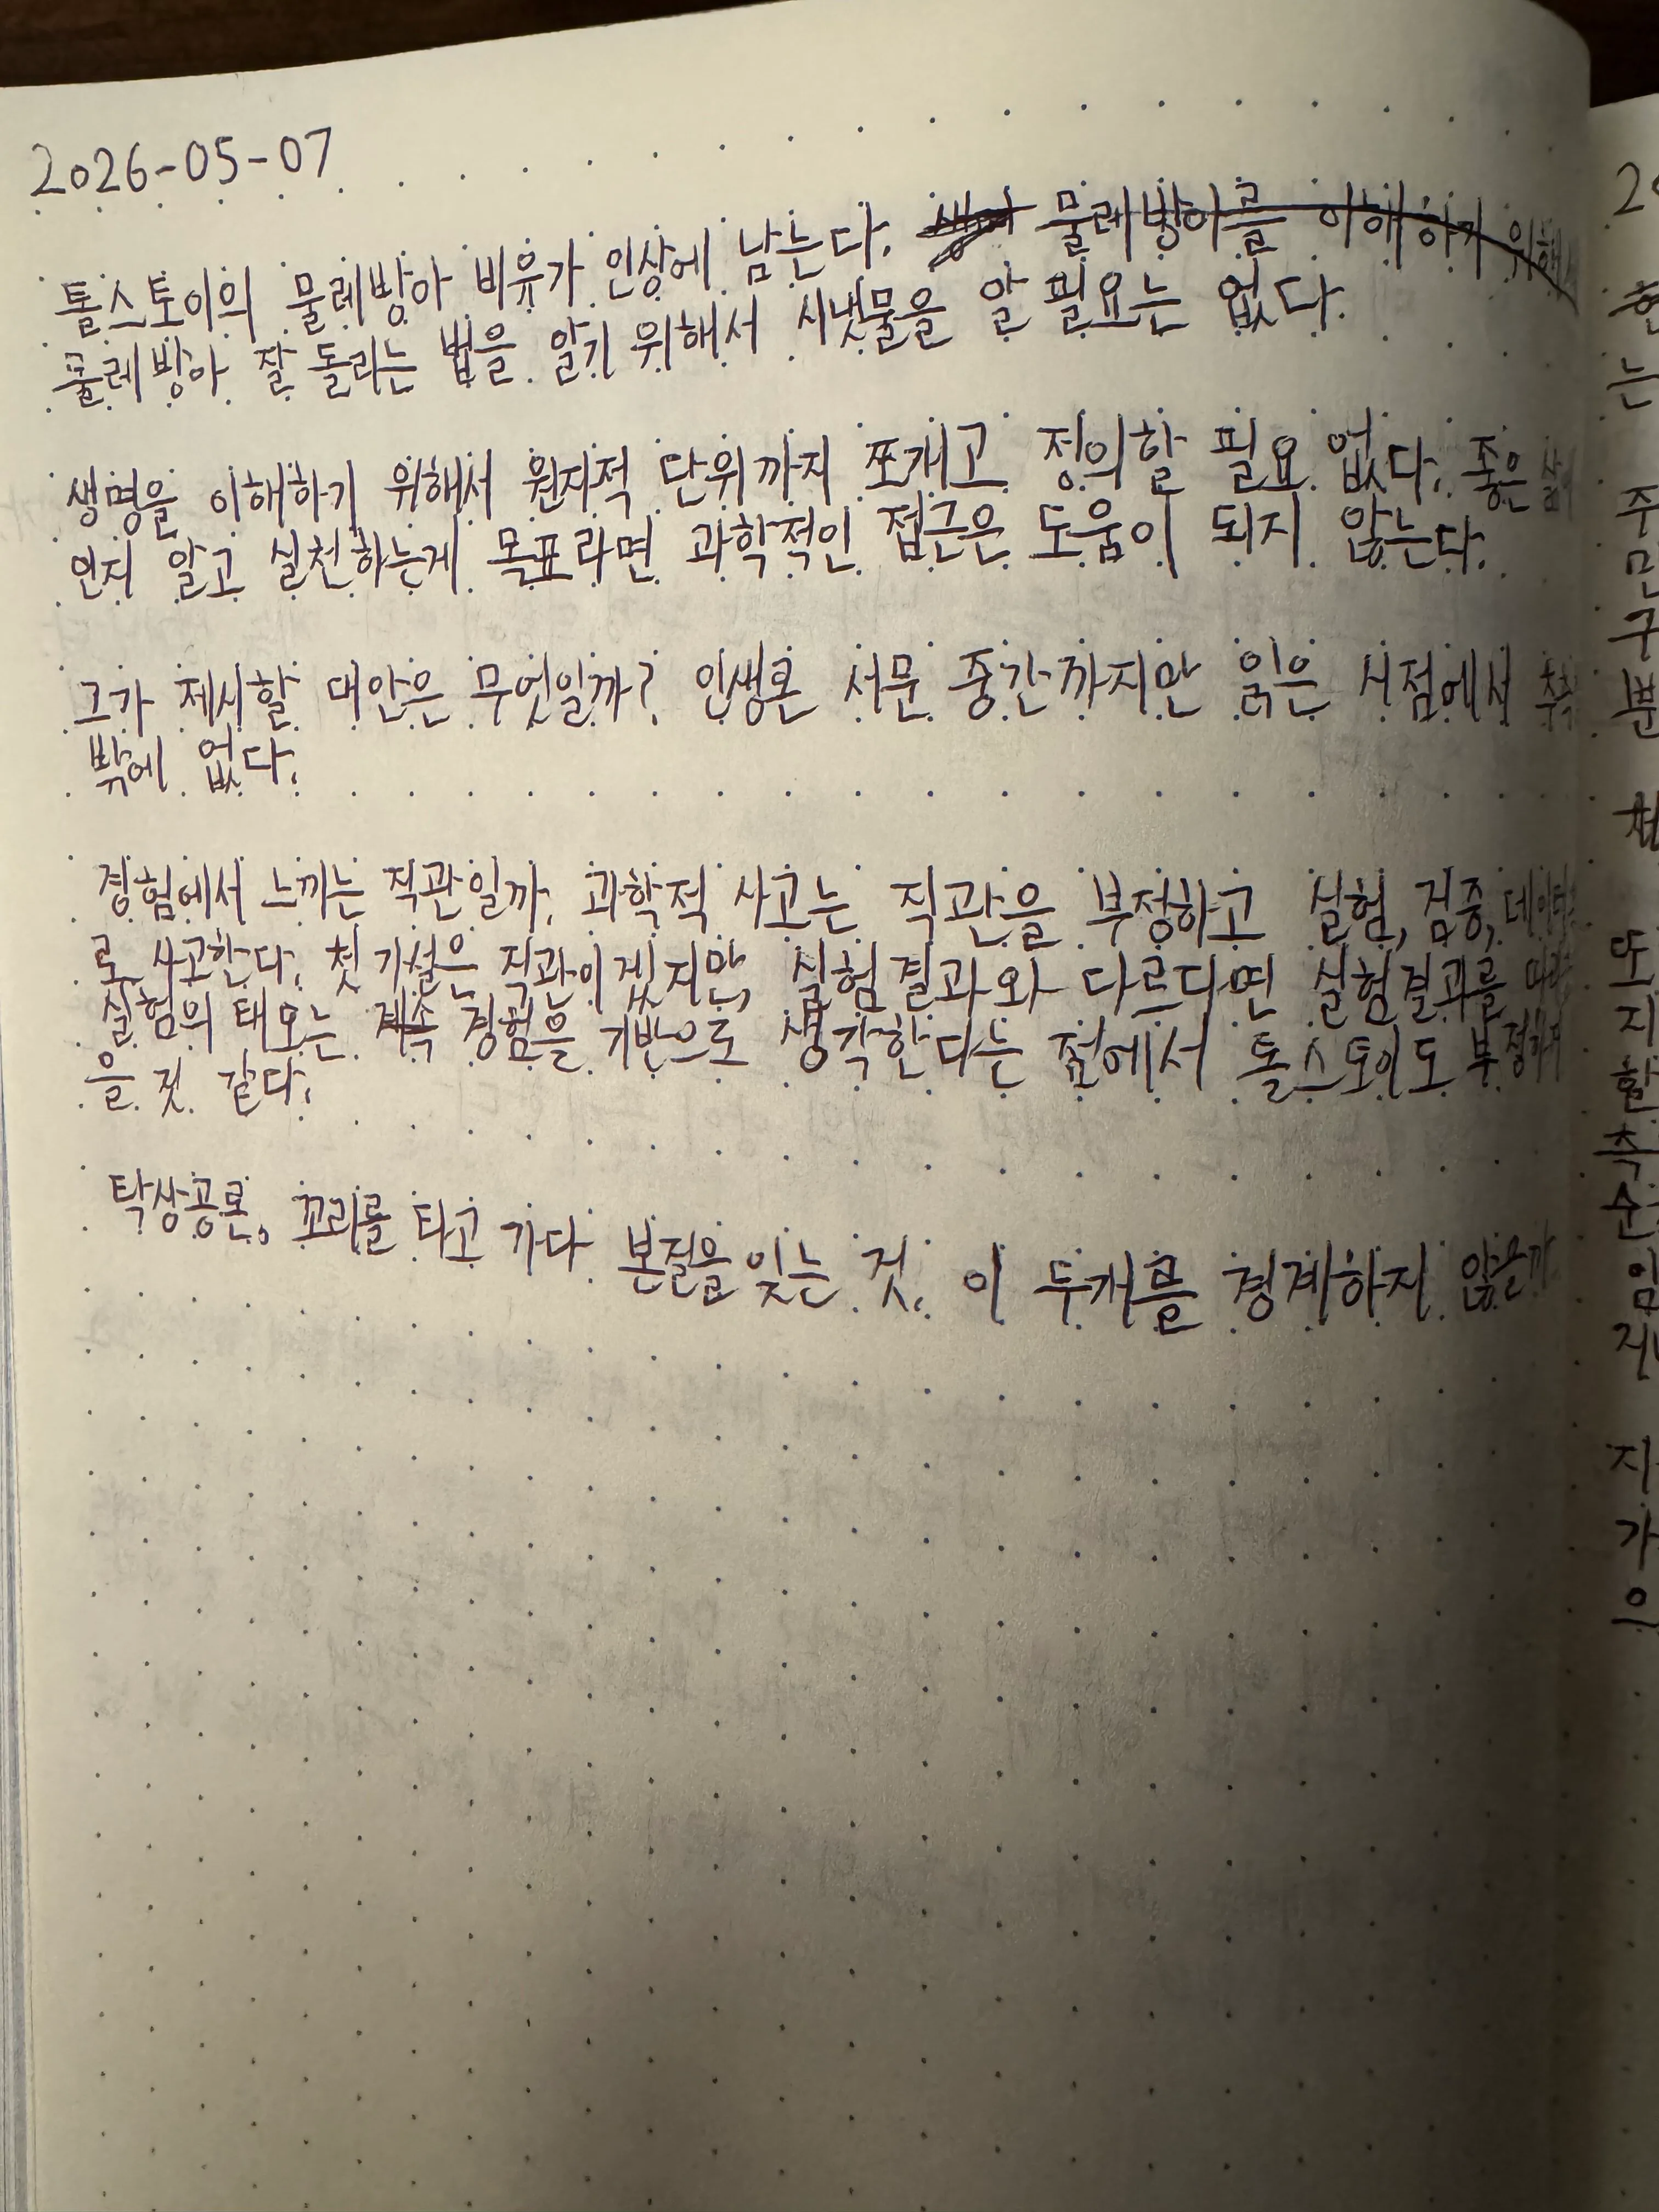 2026-05-07
톨스토이의 물레방아 비유가 인상에 남는다. 물레방아를 이해하기 위해서
물레방아 잘 돌리는 법을 알기 위해서 시냇물을 알 필요는 없다.
생명을 이해하기 위해서 원자적 단위까지 쪼개고 정의할 필요 없다. 좋은 삶이
뭔지 알고 실천하는게 목표라면 과학적인 접근은 도움이 되지 않는다.
그가 제시할 대안은 무엇일까? 인생론 서문 중간까지만 읽은 시점에서
밖에 없다.
경험에서 느끼는 직관일까. 과학적 사고는 직관을 부정하고 실험, 검증, 데이터
로 사고한다. 첫 가설은 직관이겠지만, 실험 결과와 다르다면 실험결과를
실험의 태도는 경험을 기반으로 생각한다는 점에서 톨스토이도 부정하지
을 것 같다.
탁상공론, 꼬리를 타고 가다 본질을 잊는 것. 이 두개를 경계하지 않을까